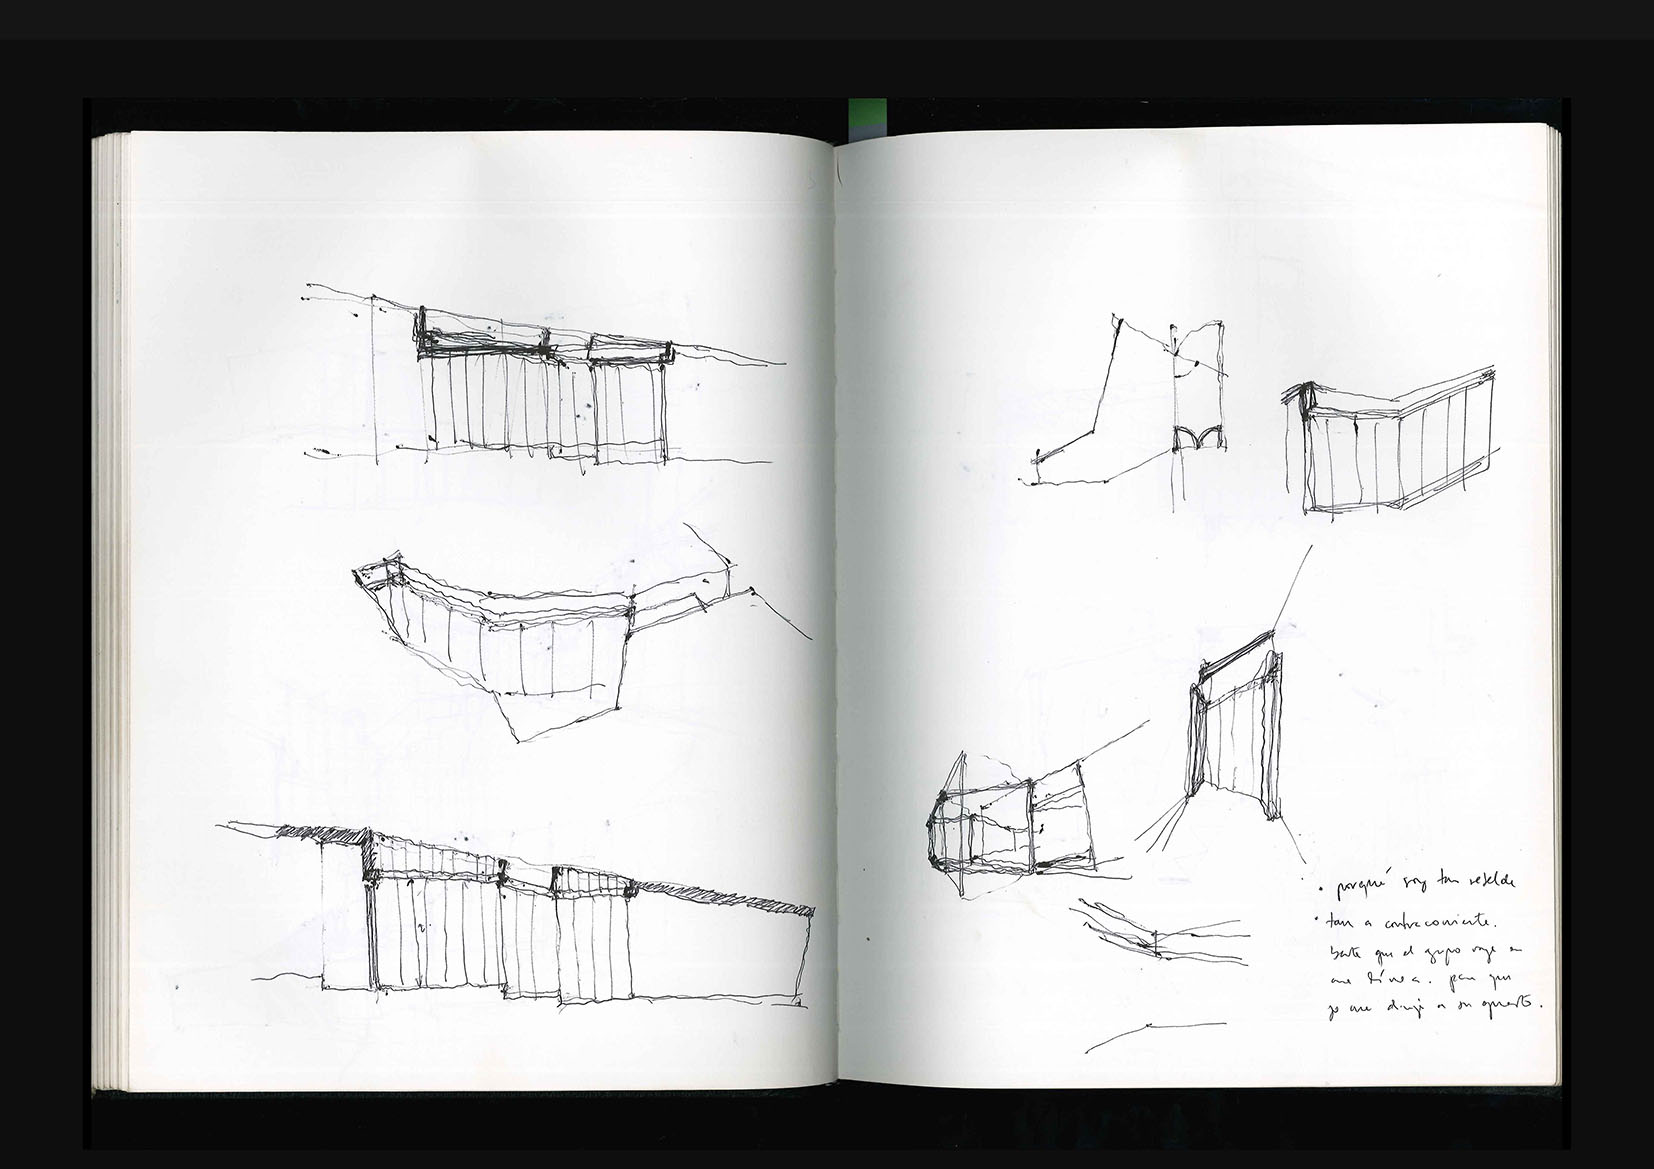 • porqué soy tan rebelde
• tan a contracorriente.
basta que el grupo vaya en
una línea. para que
yo me dirija a su opuesto.